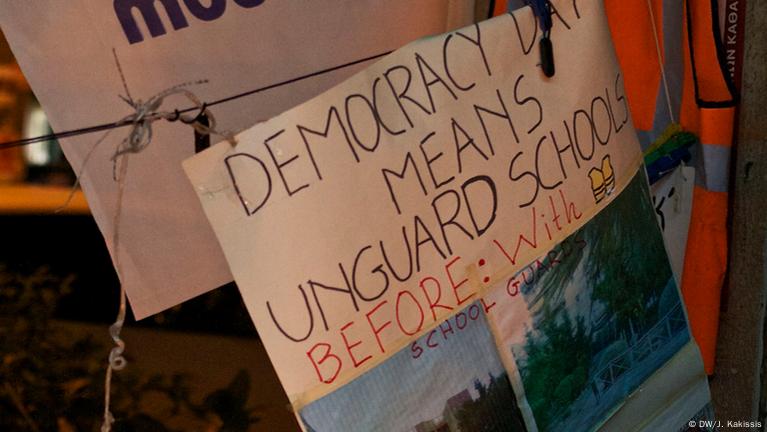 DEMOCRACY DAY
MEANS
UNGUARD SCHOOLS
BEFORE: With
SCHOOL GUARDS
ΩΝ ΚΑΘΑ
© DW/J. Kakissis